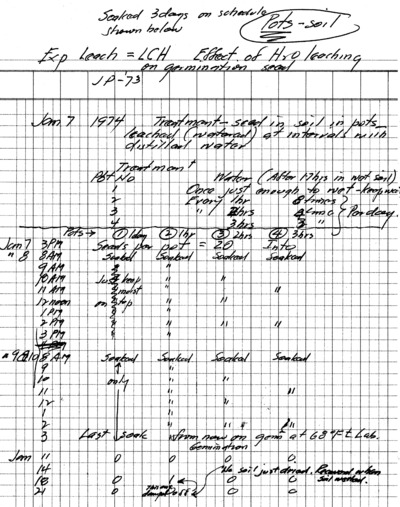 Soaked 3 days on schedule
shown below
Pots - soil
Exp Leach = LCH Effect of H2O leaching
on germination seed
JP-73
Jan 7 1974 Treatment - seed in soil in pots
leached (watered) at intervals with
distilled water
Treatment
Pot No Water (After 17 hrs in wet soil)
1 Once just enough to wet - keep wet
2 Every 1 hr 8 times
3 " 2 hrs 4 times } Per day
4 3 hrs
Pots → ① 1 day ② 1 hr ③ 2 hrs ④ 3 hrs
Jan 7 3 PM Seeds per pot = 20 Into
" 8 8 AM Soaked Soaked Soaked Soaked
9 AM "
10 AM Just keep " "
11 AM moist " "
12 noon on top " "
1 PM "
2 PM " " "
3 PM "
" 9&10 8 AM Soaked Soaked Soaked Soaked
9 "
10 only " "
11 " "
12 " "
1 "
2 " " "
3 Last soak from now on germ at 68°F t Lab.
Germination
Jan 11 0 0 0 0
14 The soil just dried. Removed when
18 0 1 0 0 soil worked.
21 0 0 0